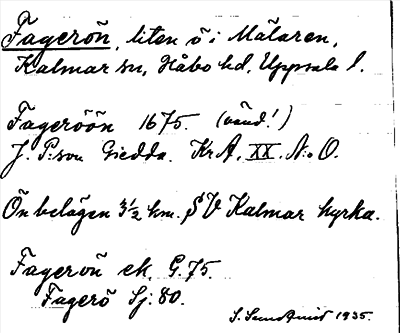 Fagerön, liten ö i Mälaren,
Kalmar sn, Håbo hd, Uppsala l.
Fageröön 1675. (vänd!)
J. P:son Giedda. KrA, XX. N:o O.
Ön belägen 3½ km. SV Kalmar kyrka.
Fagerön ek. G. 75.
Fagerö Sj: 80.
S. Sundqvist 1935.